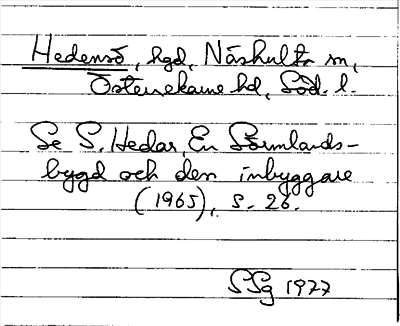 Hedensö, hgd, Näshulta sn,
Österrekarne hd, Söd. l.
Se S. Hedar, En Sörmlands-
bygd och den inbyggare
(1965), s. 26.
SSg 1977